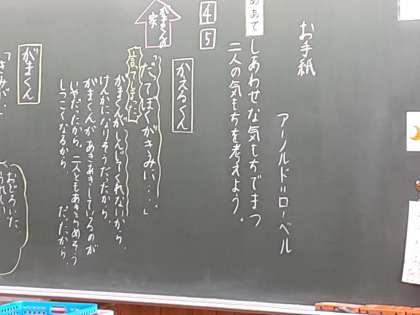 お手紙
アーノルド=ローベル
めあて
しあわせな気もちでまつ
二人の気もちを考えよう。
４
５
がまくんの家
かえるくん
「だってぼくがきみに…。」
がまくんがしんじてくれないから。
けんかになりそうだったから。
がまくんがあきあきしているのが
いやだったから。二人ともあきらめそう
だったから。
しつこくなるから。
がまくん
「きみが…」
おどろいた。